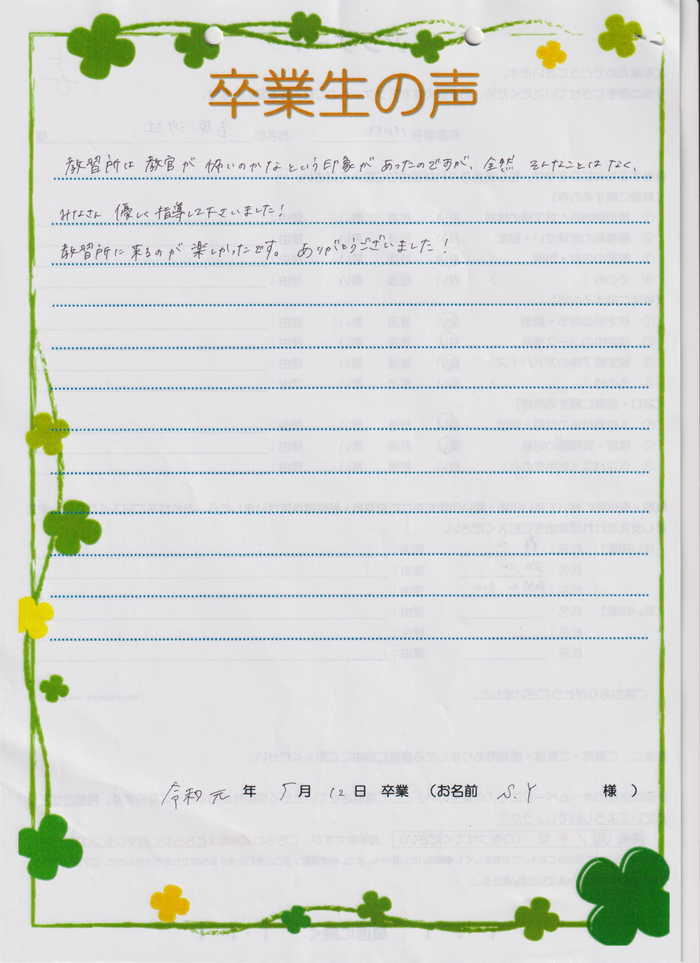 卒業生の声
教習所は教官が怖いのかなという印象があったのですが、全然そんなことはなく、
みなさん優しく指導して下さいました！
教習所に来るのが楽しかったです。ありがとうございました！
令和元年 5月 12日 卒業 （お名前 S.Y 様）